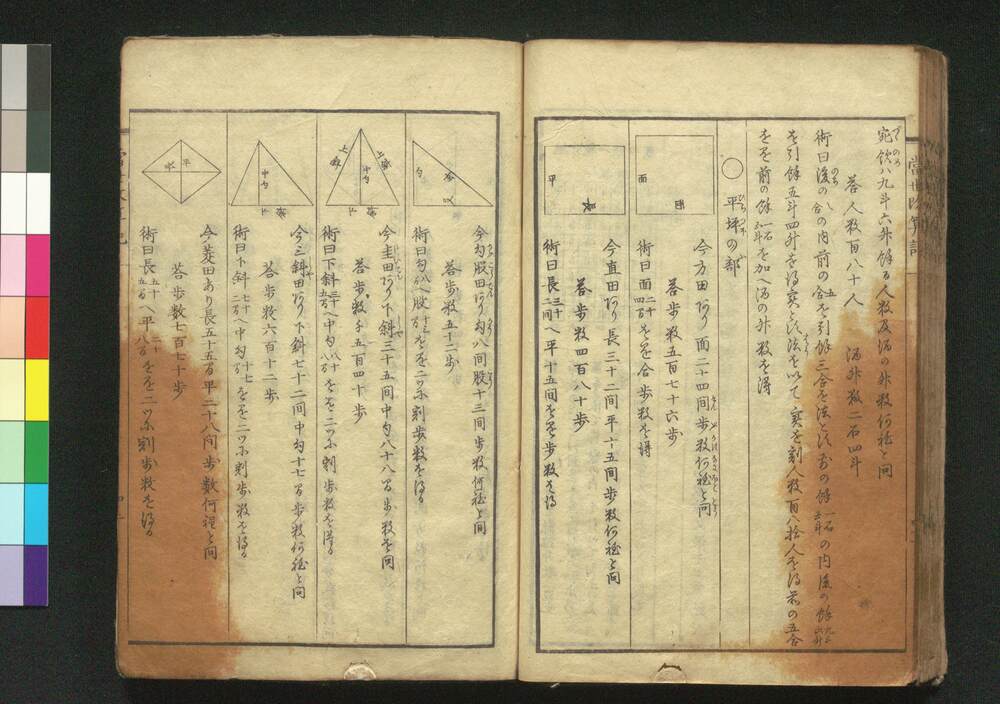 宛飲ハ九斗六升餘る人数及酒の升数何程と問
答人数百八十人 酒升数二石四斗
術曰後の八合の内前の五合を引餘三合を法とし前の餘一石五斗の内後の餘九斗六升
を引餘五斗四升を得実とし法を以て実を割人数百八拾人を得前の五合
を乗前の餘一石五斗を加へ酒の升数を得
○平坪の部
今方田あり面二十四間歩数何程と問
答歩数五百七十六歩
術曰面二十四間を乗合歩数を得
面
面
今直田あり長三十二間平十五間歩数何程と問
答歩数四百八十歩
術曰長三十二間へ平十五間を乗歩数を得
平
長
今勾股田あり勾八間股十三間歩数何程と問
答歩数五十二歩
術曰勾八間へ股十三間を乗二ツに割歩数を得る
勾
股
今圭田あり下斜三十五間中勾八十八間歩数を問
答歩数千五百四十歩
術曰下斜三十五間へ中勾八十八間を乗二ツに割歩数を得る
上斜
上斜
中勾
下斜
今三斜田あり下斜七十二間中勾十七間歩数何程と問
答歩数六百十二歩
術曰下斜七十二間へ中勾十七間を乗二ツに割歩数を得る
中勾
下斜
今菱田あり長五十五間平二十八間歩数何程と問
答歩数七百七十歩
術曰長五十五間へ平二十八間を乗二ツに割歩数を得る
平
長